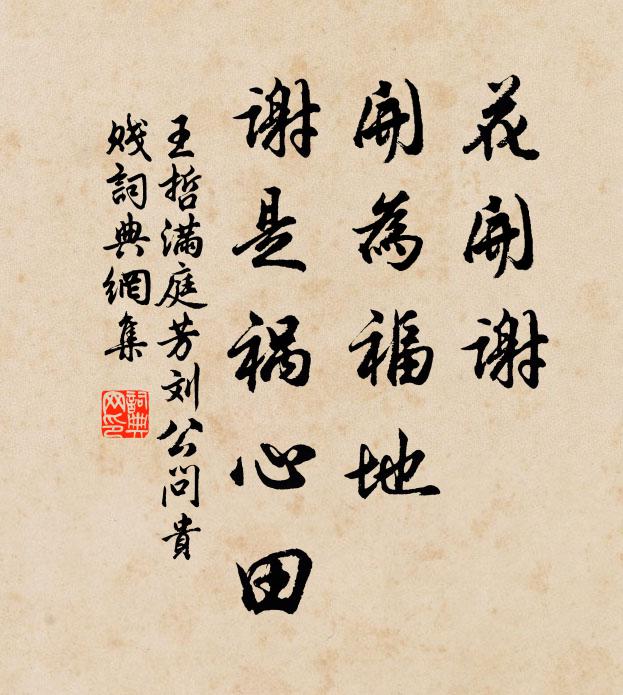 花開謝
開為福地
謝是祸心田
王哲满庭芳刘公問貴
贱詞典網集
詞典
网印